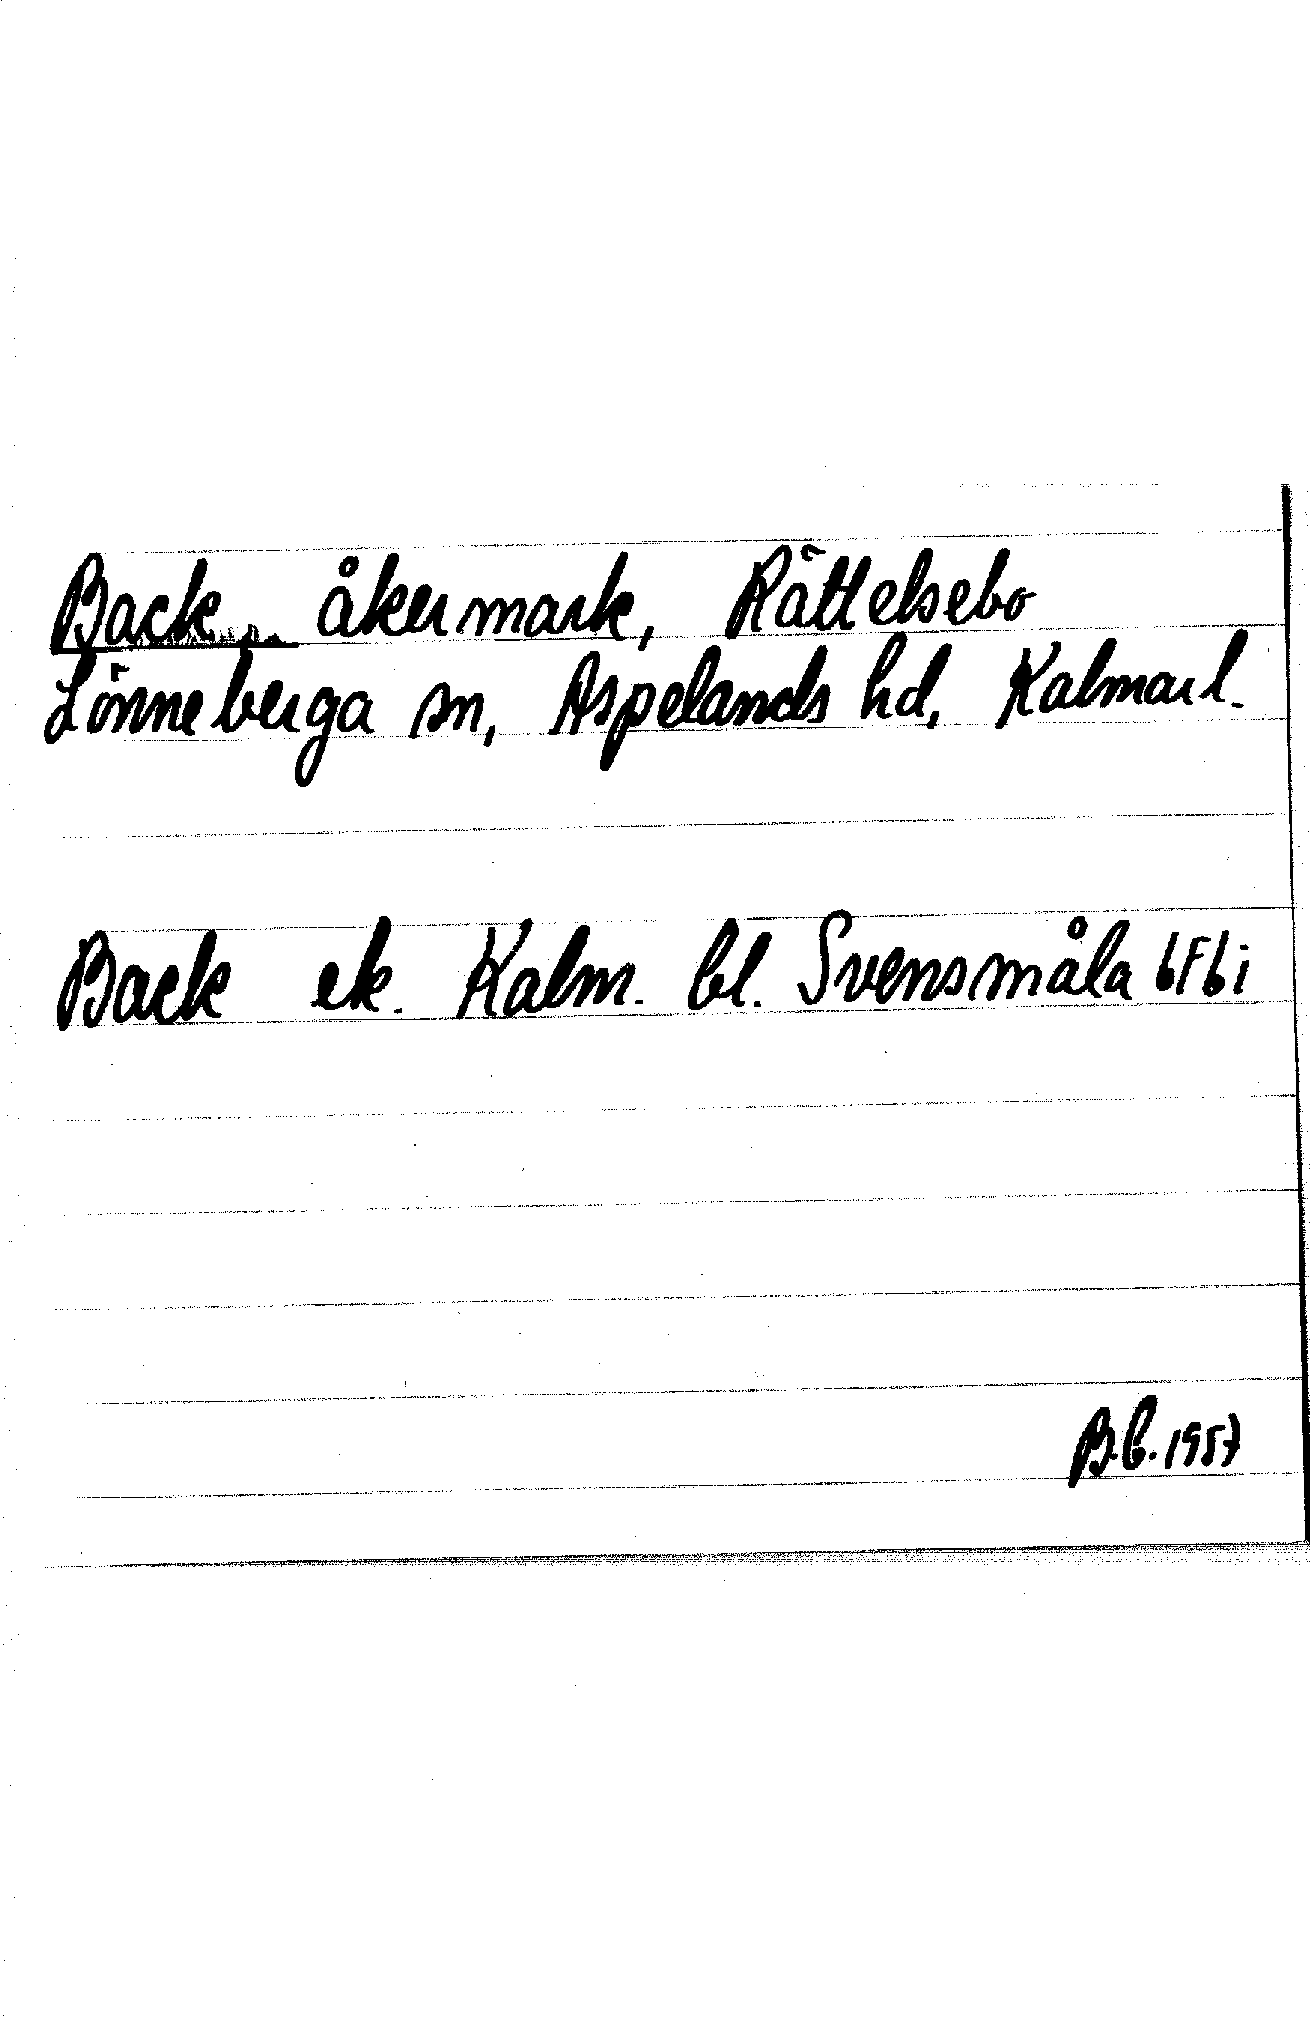 Back åkermark, Rättelsebo
Lönneberga sn, Aspelands hd, Kalmar l.
Back ek. Kalm. bl. Svensmåla 6F6i
B.C. 1957